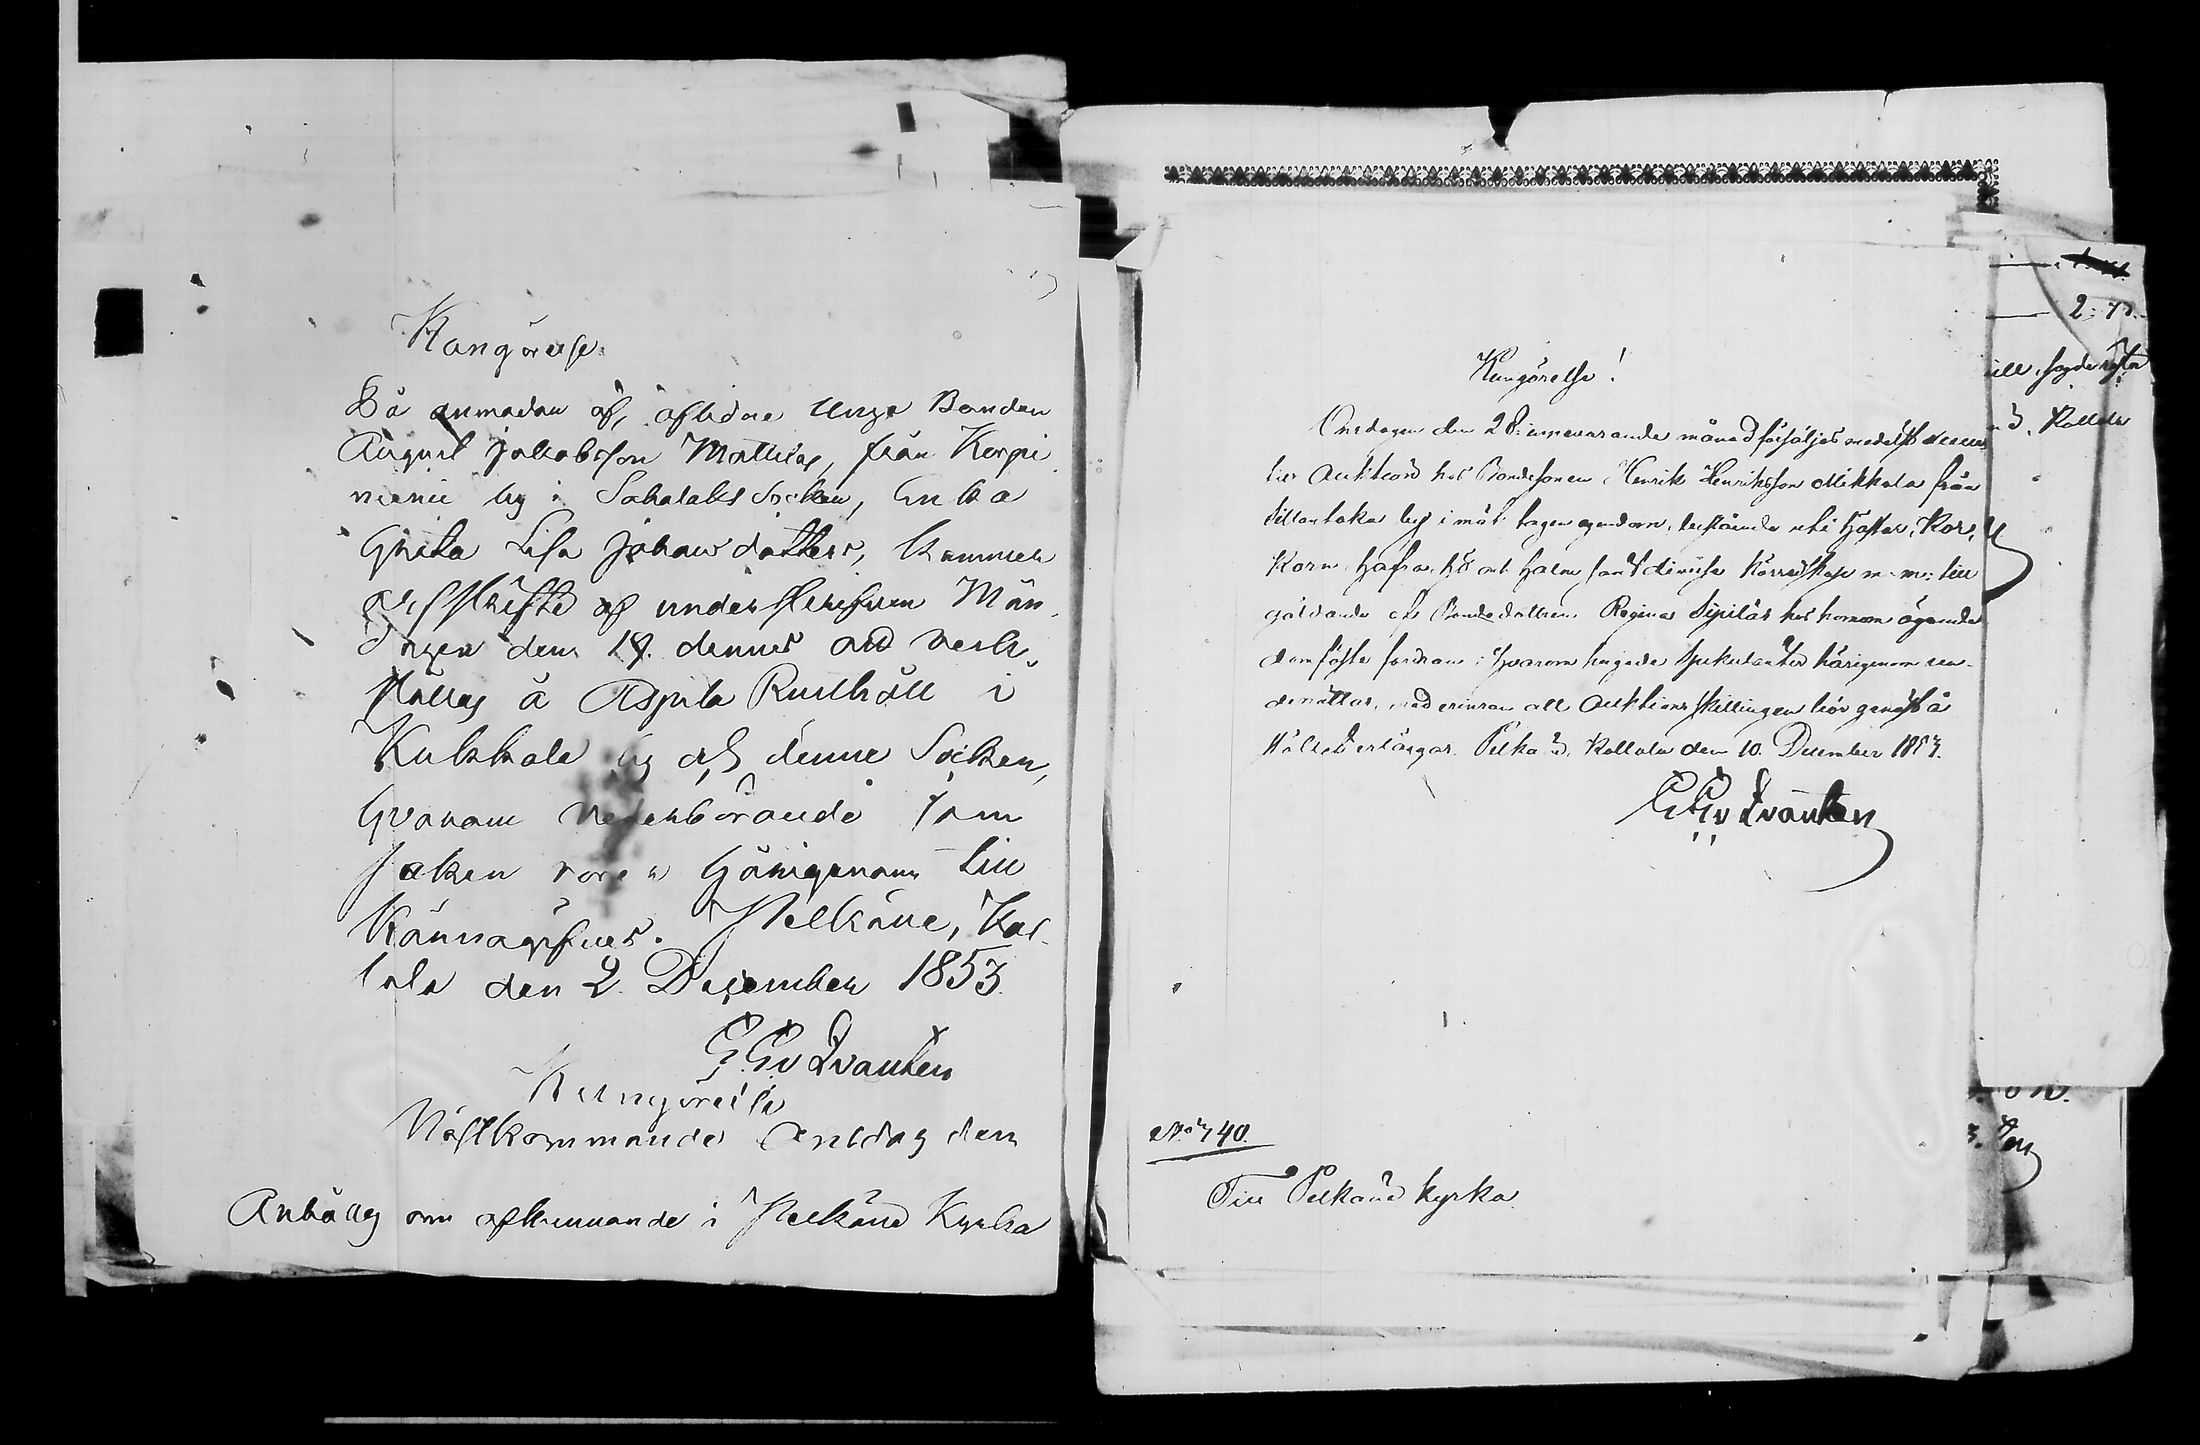 Kungörelse.
På anmodan af, aflidne Unge Bonden
August Jakobsson Mattilas, från Korpi
niemi by i Sahalaks Socken, Enka
Greta Lisa Johansdotter, kommer
arfskifte af underskrifven Mån-
dagen den 19. dennes att verk-
ställas å Aspila Rusthåll i
Kukkola by och denne Socken,
hvarom vederbörande som
saken rörer härigenom till
kännagifves. Pelkäne, Kol-
lola den 2. December 1853.
G. Gv Qvanten
Kungörelse
Nästkommande Onsdag den
Anhålles om afkunnande i Pelkäne Kyrka
Kungörelse!
Onsdagen den 28. innevarande månad försäljes medelst
lig Auktion hos Bondesonen Henrik Henriksson Mikkola från
by i mät tagen egendom, bestående uti Hästar, Kor,
Korn, Hafra, hö och halm samt diverse Körredskap m. m. till
gäldande af Bondedottren Regina Sipiläs hos honom ägande
domfäste fordran; hvarom hugade Spekulanter härigenom un-
derrättas, med erinran att Auktions skillingen bör genast å
Stället erläggas. Pelkäne, Kollola den 10. December 1853.
G Gv Qvanten
No 740.
Till Pelkäne kyrka.
2:
Kollola